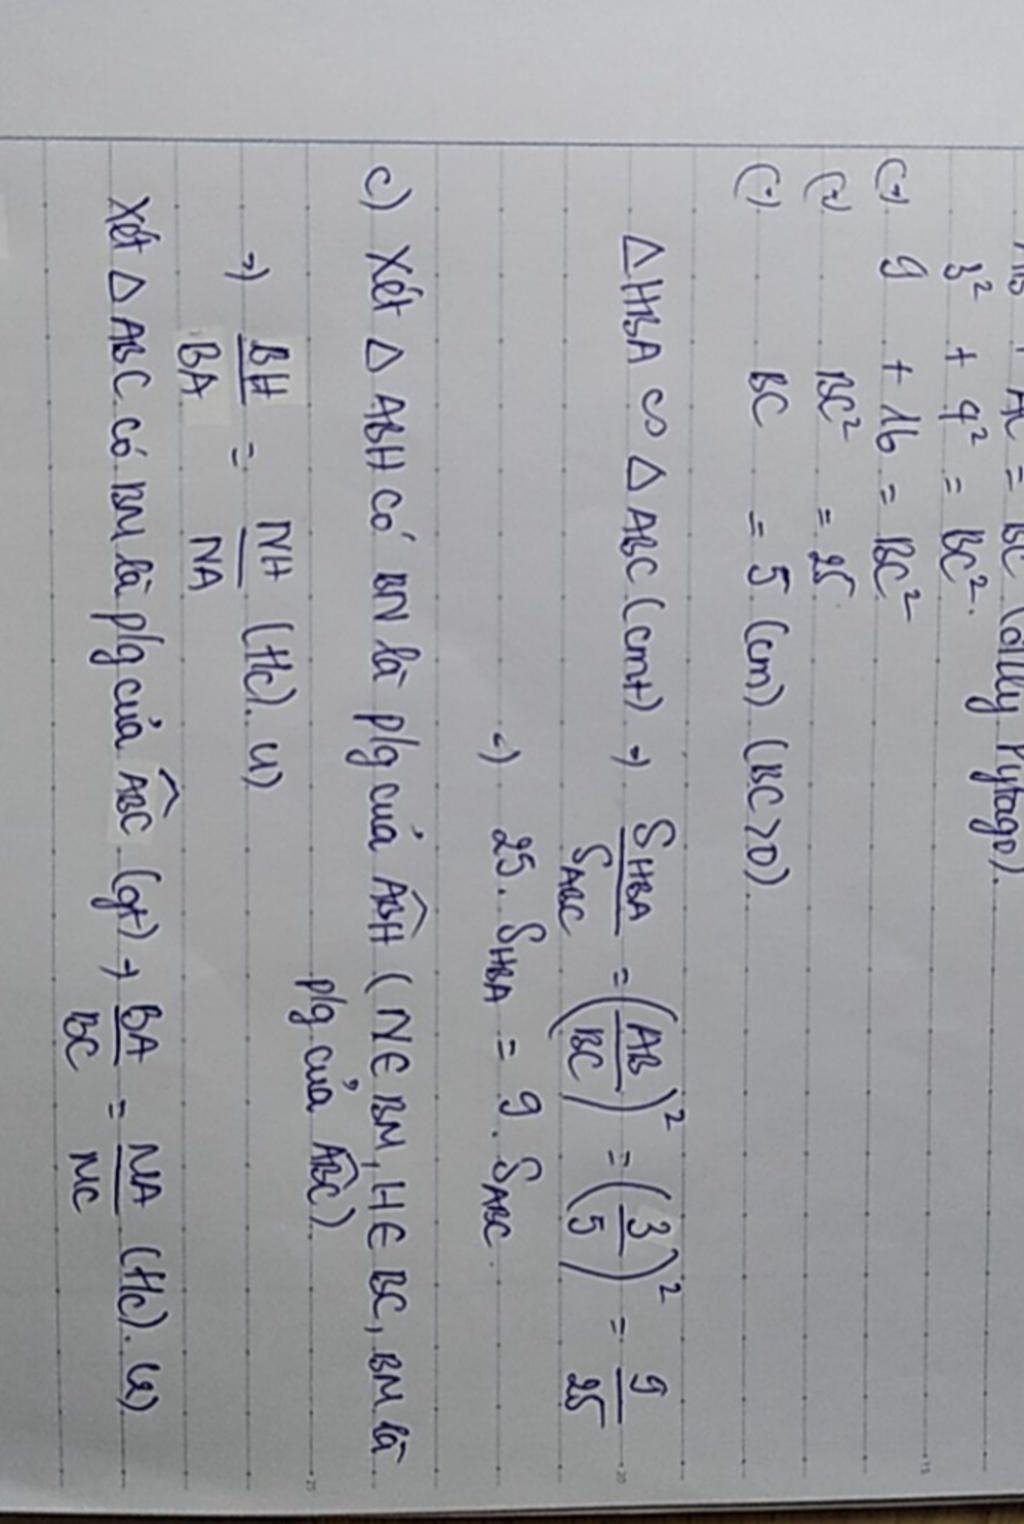 AC = BC (đlý Pytago).
3² + 4² = BC².
(=) 9 + 16 = BC²
(=) BC² = 25
(=) BC = 5 (cm) (BC>0).
△HBA ∽ △ABC (cmt) => S_HBA/S_ABC = (AB/BC)² = (3/5)² = 9/25
=) 25. S_HBA = 9. S_ABC.
c) Xét △ ABH có BN là p/g của ABH (N∈BM, H∈BC, BM là
p/g của ABC).
=) BH/BA = NH/NA (t/c). (1)
Xét △ ABC có BM là p/g của ABC (gt) → BA/BC = MA/MC (t/c). (2)